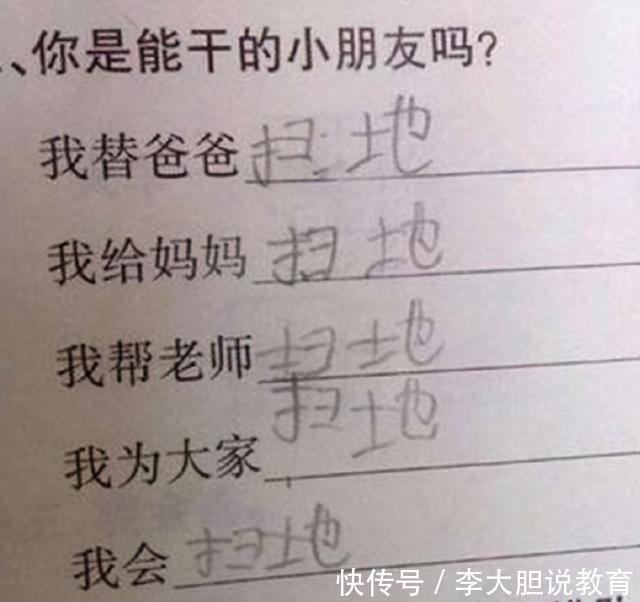 、你是能干的小朋友吗?
我替爸爸扫地
我给妈妈扫地
我帮老师扫地
我为大家扫地
我会扫地
快传号/李大胆说教育